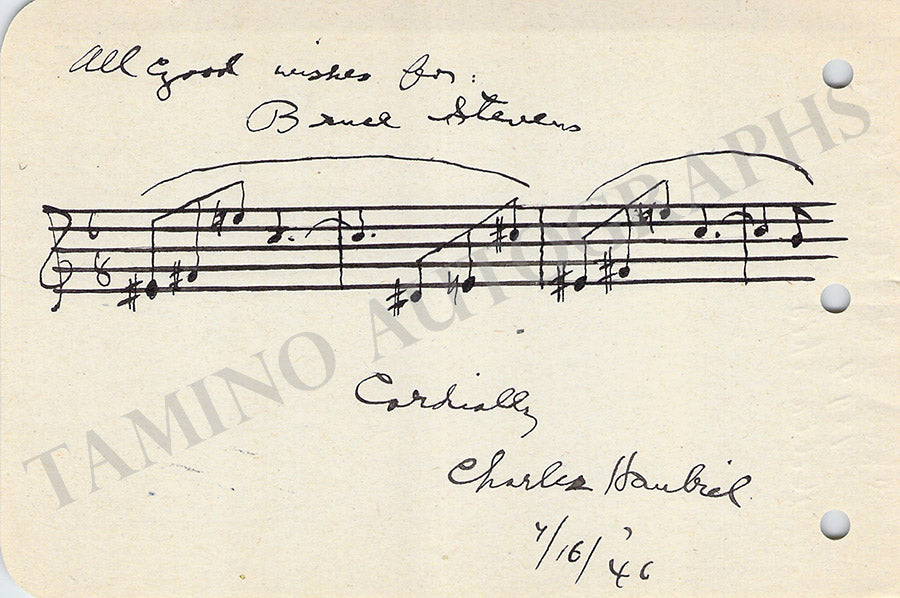 All good wishes for:
Bruce Stevens
6
8
TAMINO AUTOGRAPHS
Cordially
Charles Haubiel
7/16/'46